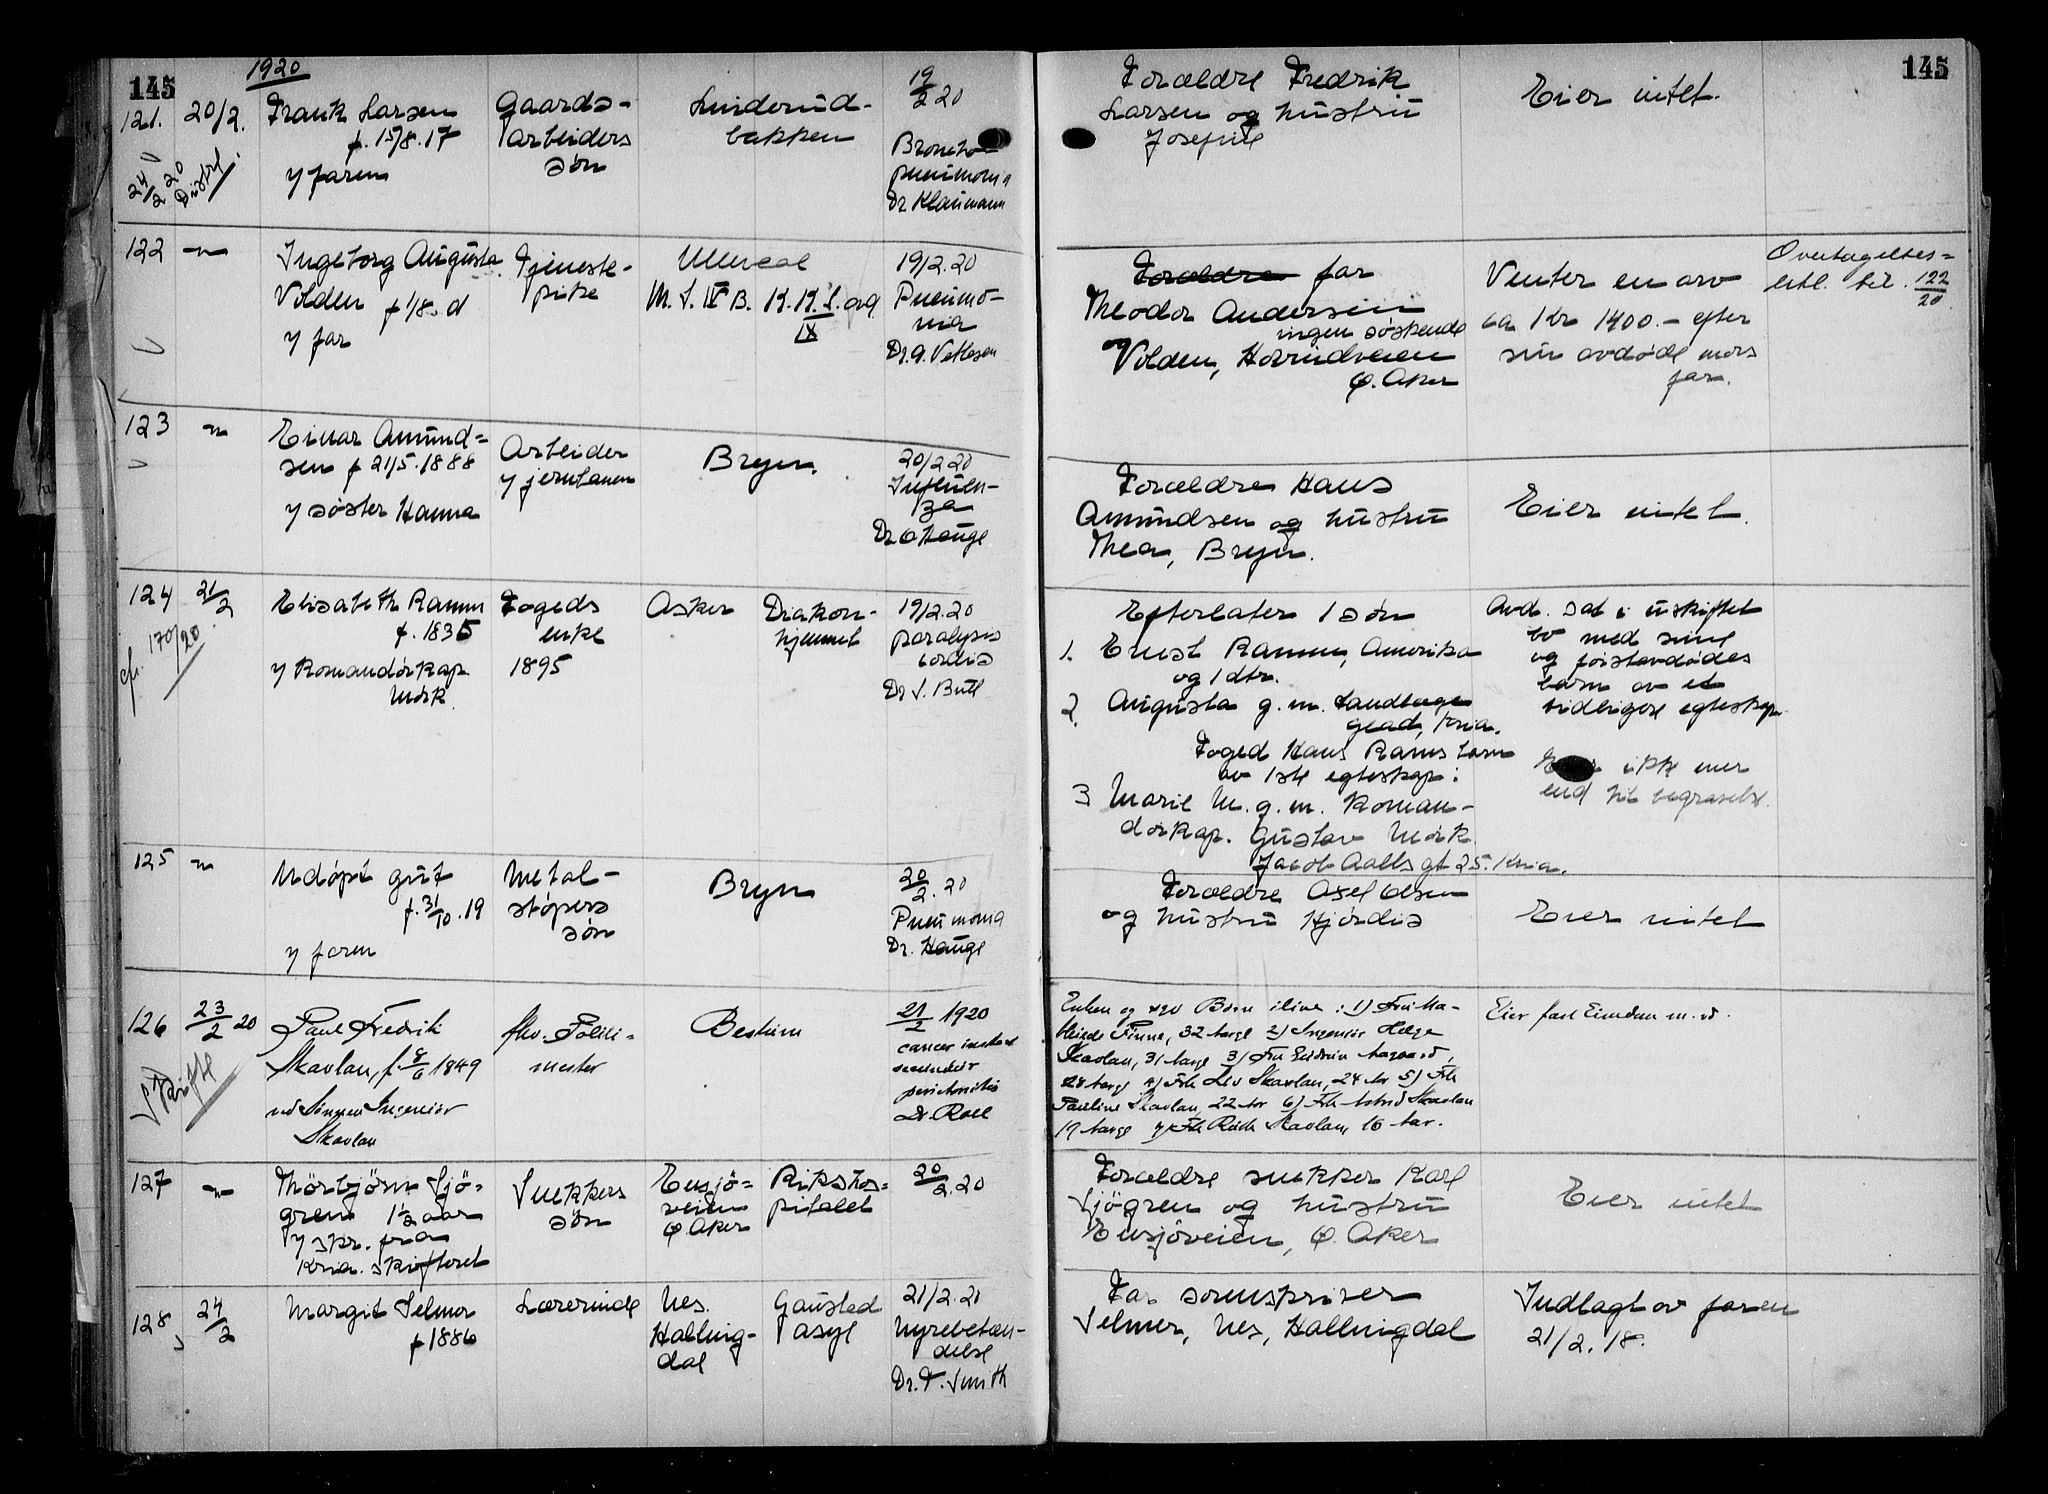 145
1920
145
121.
20/2.
Frank Larsen
f. 15/8.17
y faren
24/2 20
Gaards-
arbeiders
søn
Linderud-
bakken
19/2 20
Broncho-
pneumoni
Dr Klaumann
Forældre Fredrik
Larsen og hustru
Josefine
Eier intet.
122
Ingeborg Augusta
Volden f 1/8.
y far
Tjeneste-
pike
Ullevaal
M. S. IV B.
19/2.20
Pneumo-
nia
Dr. A. Vetlesen
Forældre far
Theodor Andersen
ingen søskende
og
Volden, Hovindveien
Ø. Aker
Venter en arv
ca Kr 1400.- efter
sin avdøde mors
far.
Overtagelses-
erkl. til. 122/20.
123
Einar Amund-
sen f 21/5.1888
y søster Hanna
Arbeider
y jernbanen
Bryn.
20/2 20
Influen-
za
Dr O Hauge
Forældre Hans
Amundsen og hustru
Thea, Bryn.
Eier intet.
124
21/2
cfr. 170/20
Elisabeth Ramm
f. 1835
y Komandørkap.
Mørk
Fogeds
enke
1895
Asker
Diakon-
hjemmet
19/2.20
paralysis
cordis
Dr J. Bull
Efterlater 1 søn
1. Ernst Ramm, Amerika
og 1 dtr.
2. Augusta g.m.
Kria.
Foged Hans Ramms barn
av 1ste egteskap:
3 Marie M. g.m. Koman-
dørkap. Gustav Mørk
Jacob Aalls gt 25. Kria.
Avd. sat i uskiftet
bo med sine
og førstavdødes
barn av et
tidligere egteskap
ikke mer
end til begravelse.
125
Udøpt gut
f. 31/10.19
y faren
Metal-
støpers
søn
Bryn
20/2. 20
Pneumonia
Dr. Hauge
Forældre Axel Olsen
og hustru Hjørdis
Eier intet
126
23/2 20
Skifte
Paul Fredrik
Skavlan, f. 8/6 1849
ved Sønnen Ingeniør
Skavlan
fhv. Politi-
mester
Bestum
21/2 1920
cancer
secundær
peritonitis
Dr. Roll
Enken og syv Børn ilive: 1) Fru Ma-
thilde Finne, 32 Aarge 2) Ingeniør Helge
Skavlan, 31 Aarge 3) Fru Gudrun Aagaard,
28 Aarge 4) Frk Liv Skavlan, 24 Ar 5) Frk
Pauline Skavlan 22 Ar 6) Frk Astrid Skavlan
19 Aarge 7) Frk Ruth Skavlan 16 Aar.
Eier fast Eiendom m.v.
127
Thorbjørn Sjö-
gren 1½ aar
y skr. fra
Kria. skifteret
Snekkers
søn
Ensjø-
veien
Ø. Aker
Rikshos-
pitalet
20/2.20
Forældre snekker Karl
Sjögren og hustru
Ensjøveien, Ø. Aker
Eier intet
128
24/2
Margit Selmer
f 1886
Lærerinde
Nes.
Halling-
dal
Gaustad
asyl
21/2.20
Nyrebetæn-
delse
Dr. F. Smith
Far sorenskriver
Selmer, Nes, Hallingdal
Indlagt av faren
21/2.18.